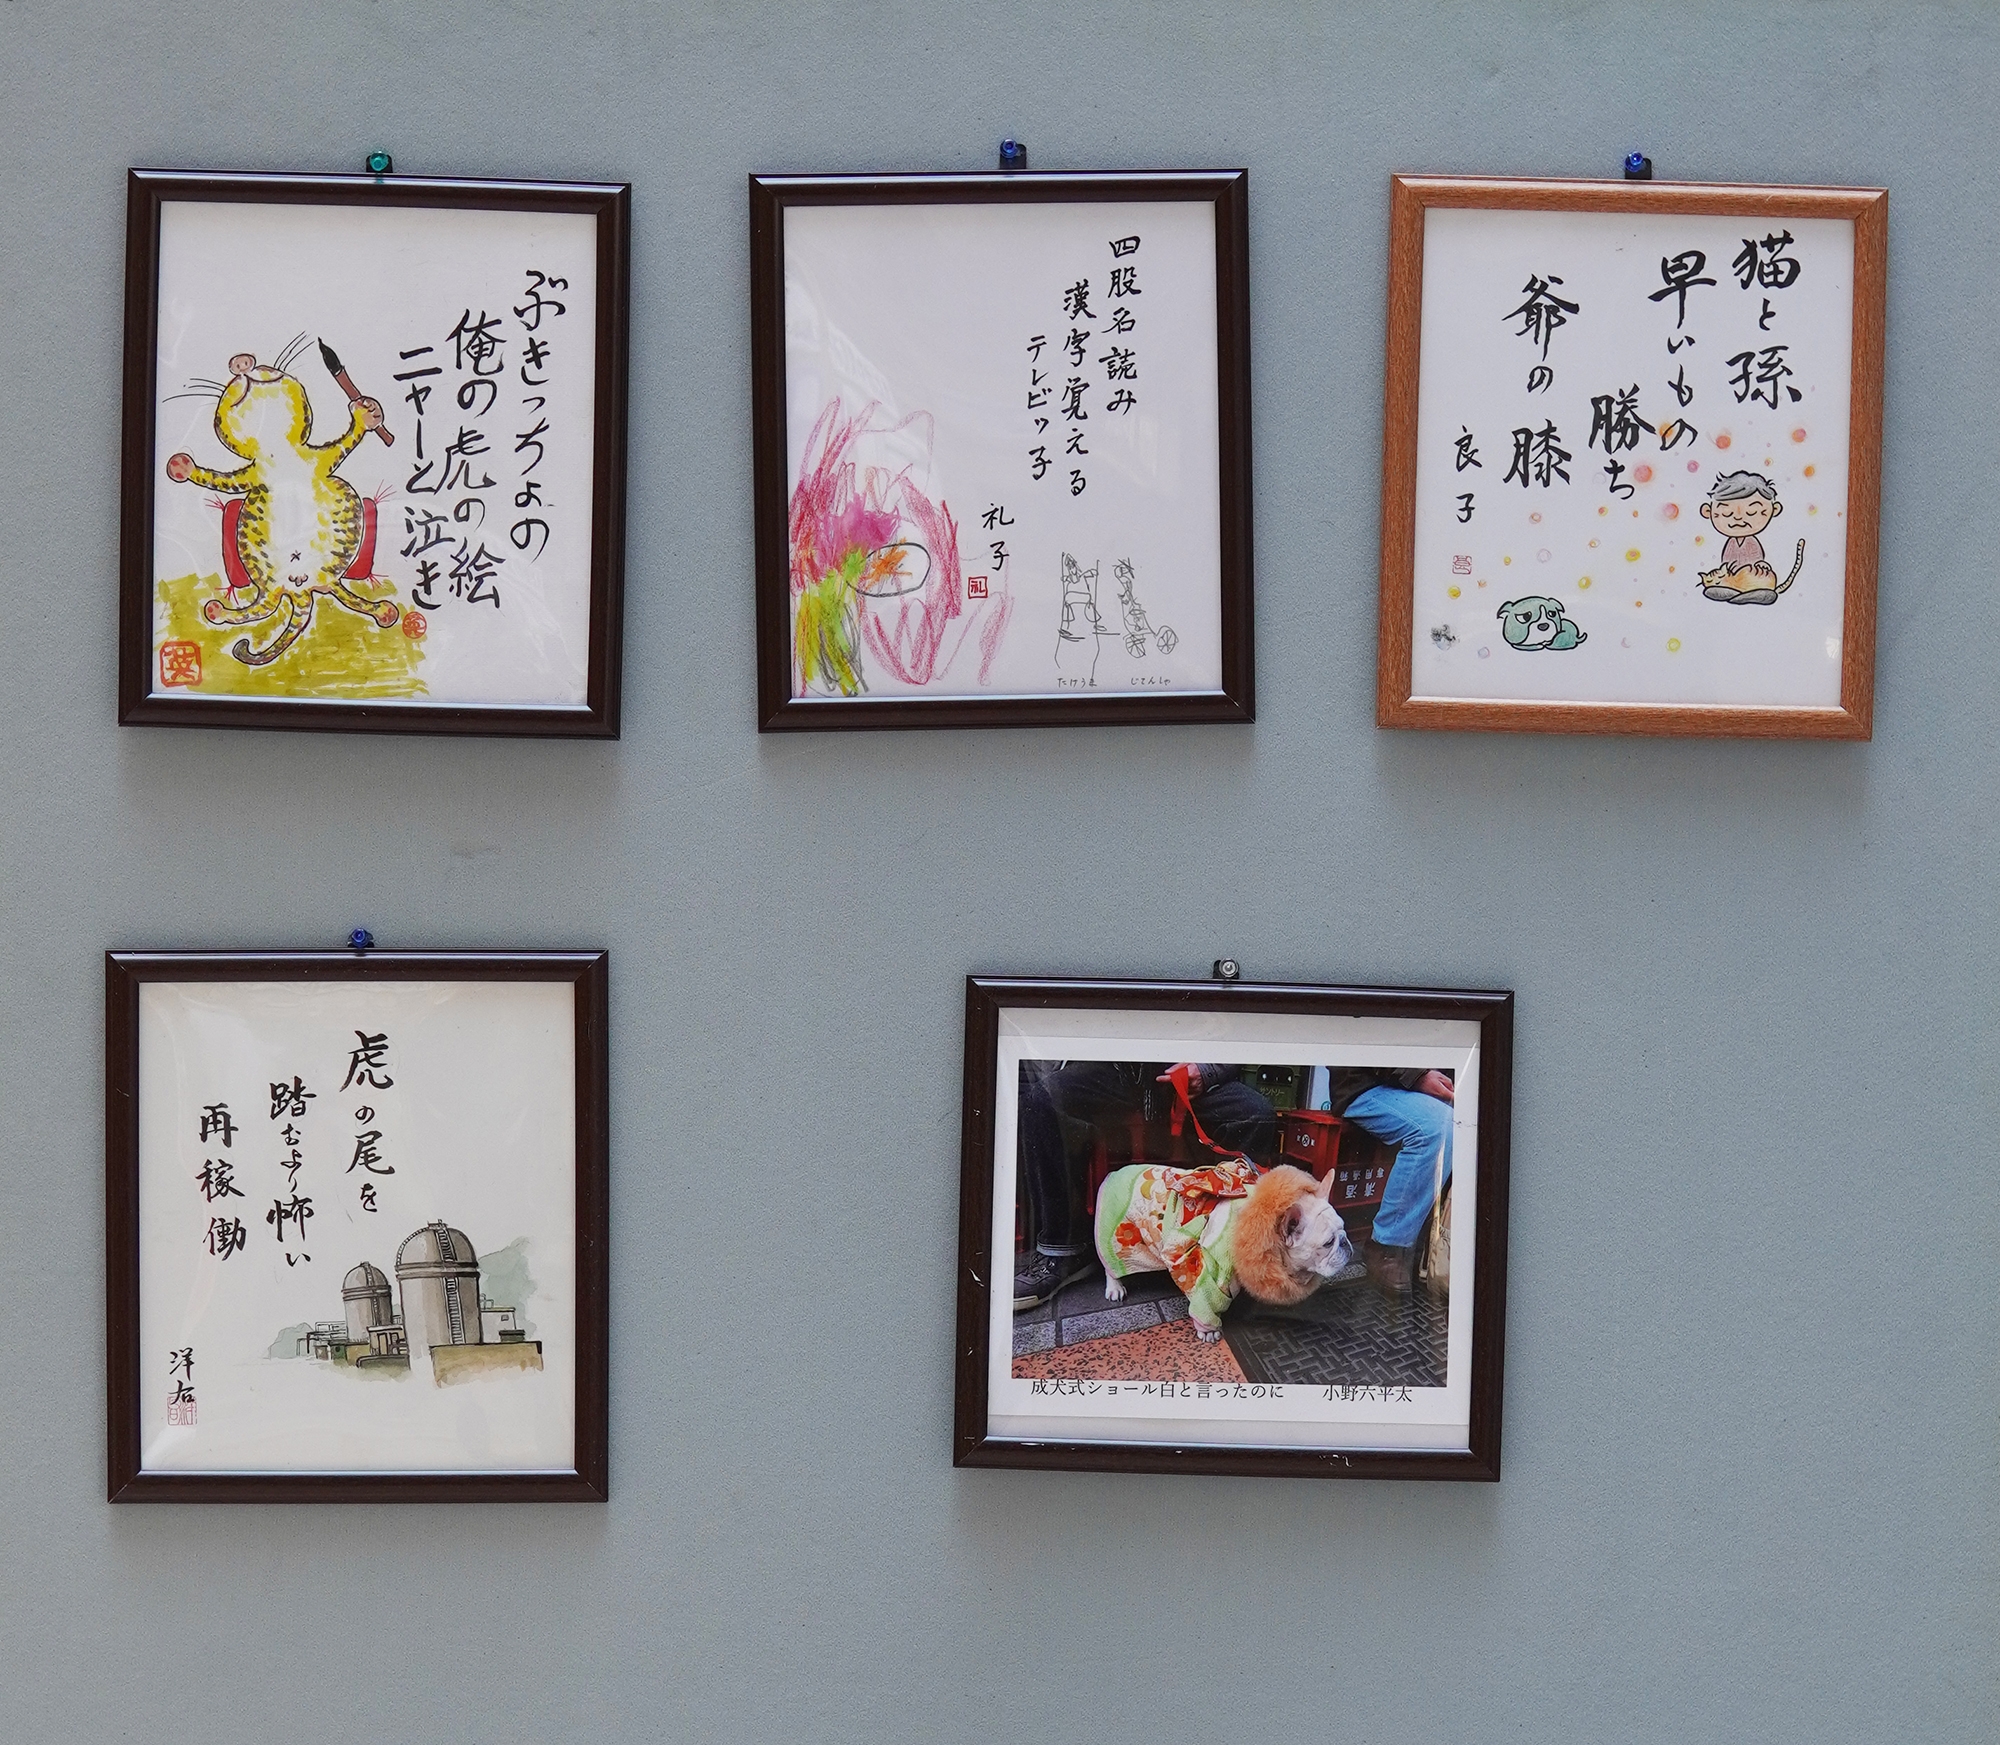 ぶきっちょの
俺の虎の絵
ニャーと泣き
英
四股名読み
漢字覚える
テレビッ子
礼子
礼
たけうま
じてんしゃ
猫と孫
早いもの
勝ち
爺の膝
良子
虎の尾を
踏むより怖い
再稼働
洋右
サントリー
清酒
成犬式ショール白と言ったのに 小野六平太